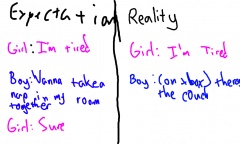 Expectation
Girl: I'm tired
Boy: Wanna take a
nap in my room
together
Girl: Sure
Reality
Girl: I'm Tired
Boy: (on xbox) theres
the couch